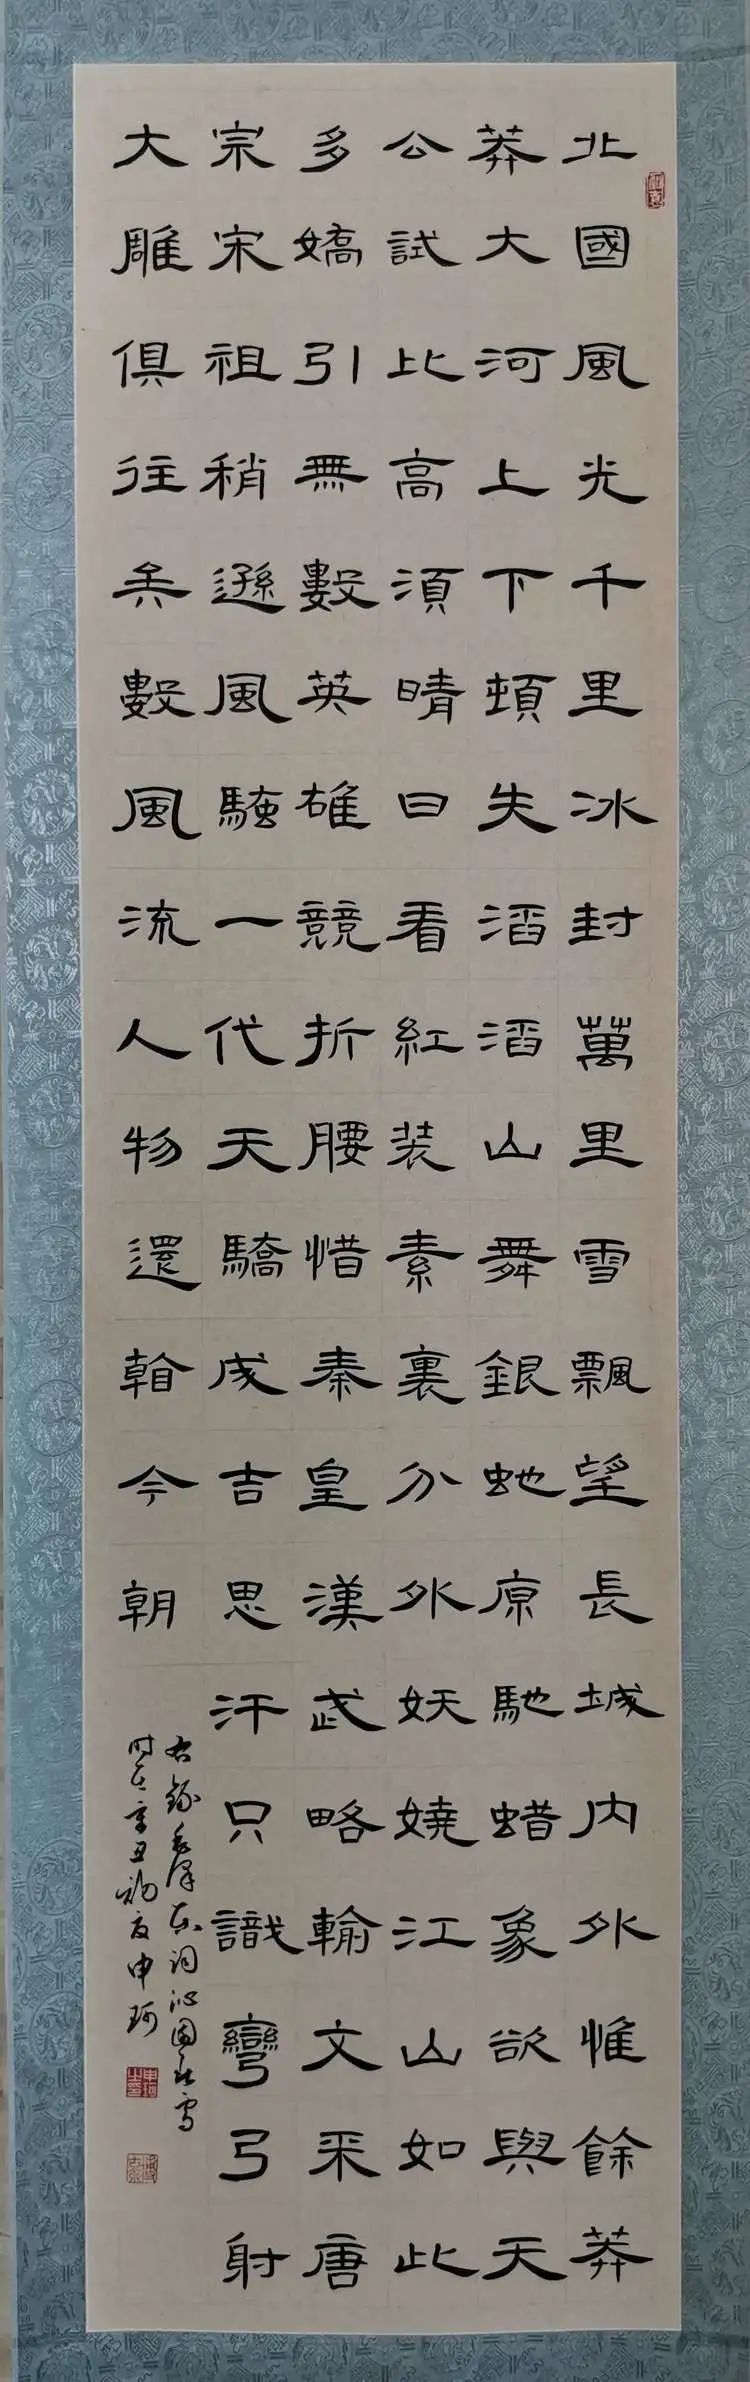 北國風光千里冰封萬里雪飄望長城内外惟餘莽
莽大河上下頓失滔滔山舞銀虵原馳蜡象欲與天
公試比高湏晴日看紅装素裹分外妖嬈江山如此
多嬌引無數英雄競折腰惜秦皇漢武略輸文采唐
宗宋祖稍遜風騷一代天驕成吉思汗只識彎弓射
大雕俱往矣數風流人物還看今朝
右錄毛澤東詞沁園春雪
時在辛丑初夏申珂
申珂之印